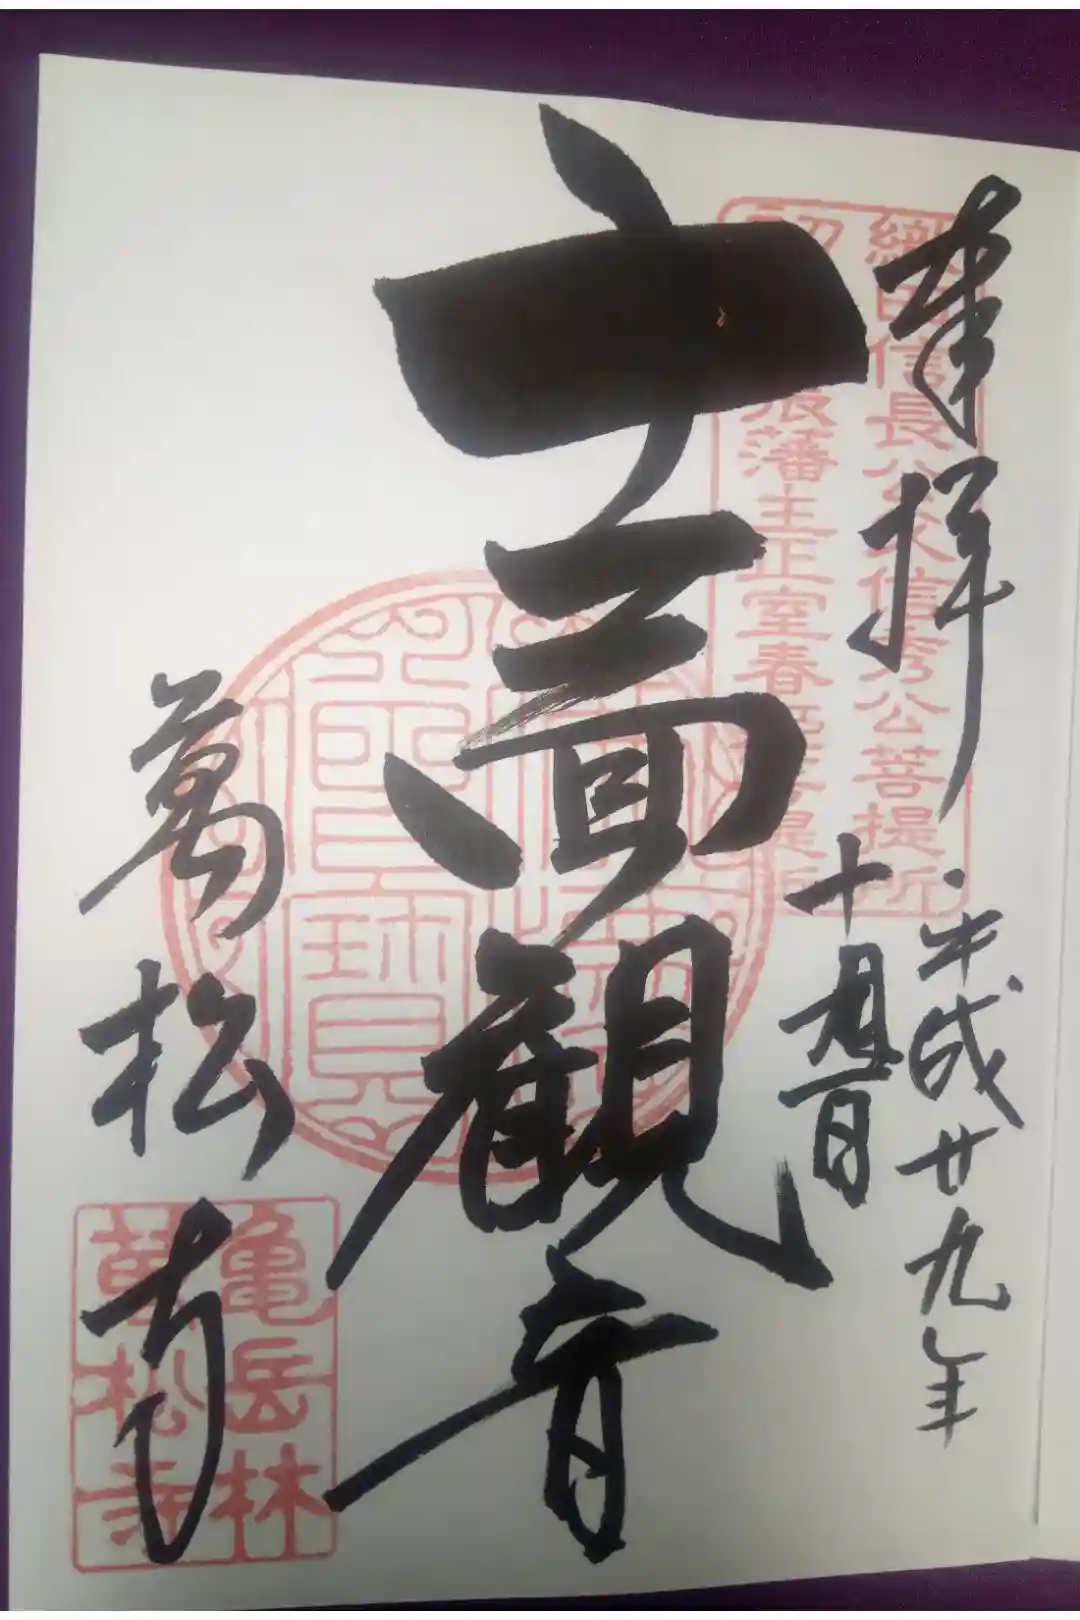 奉拝
平成廿九年
十月九日
織田信長公父信秀公菩提所
張藩主正室春姫菩提所
十一面観音
佛法僧寶
萬松寺
亀岳林
萬松寺